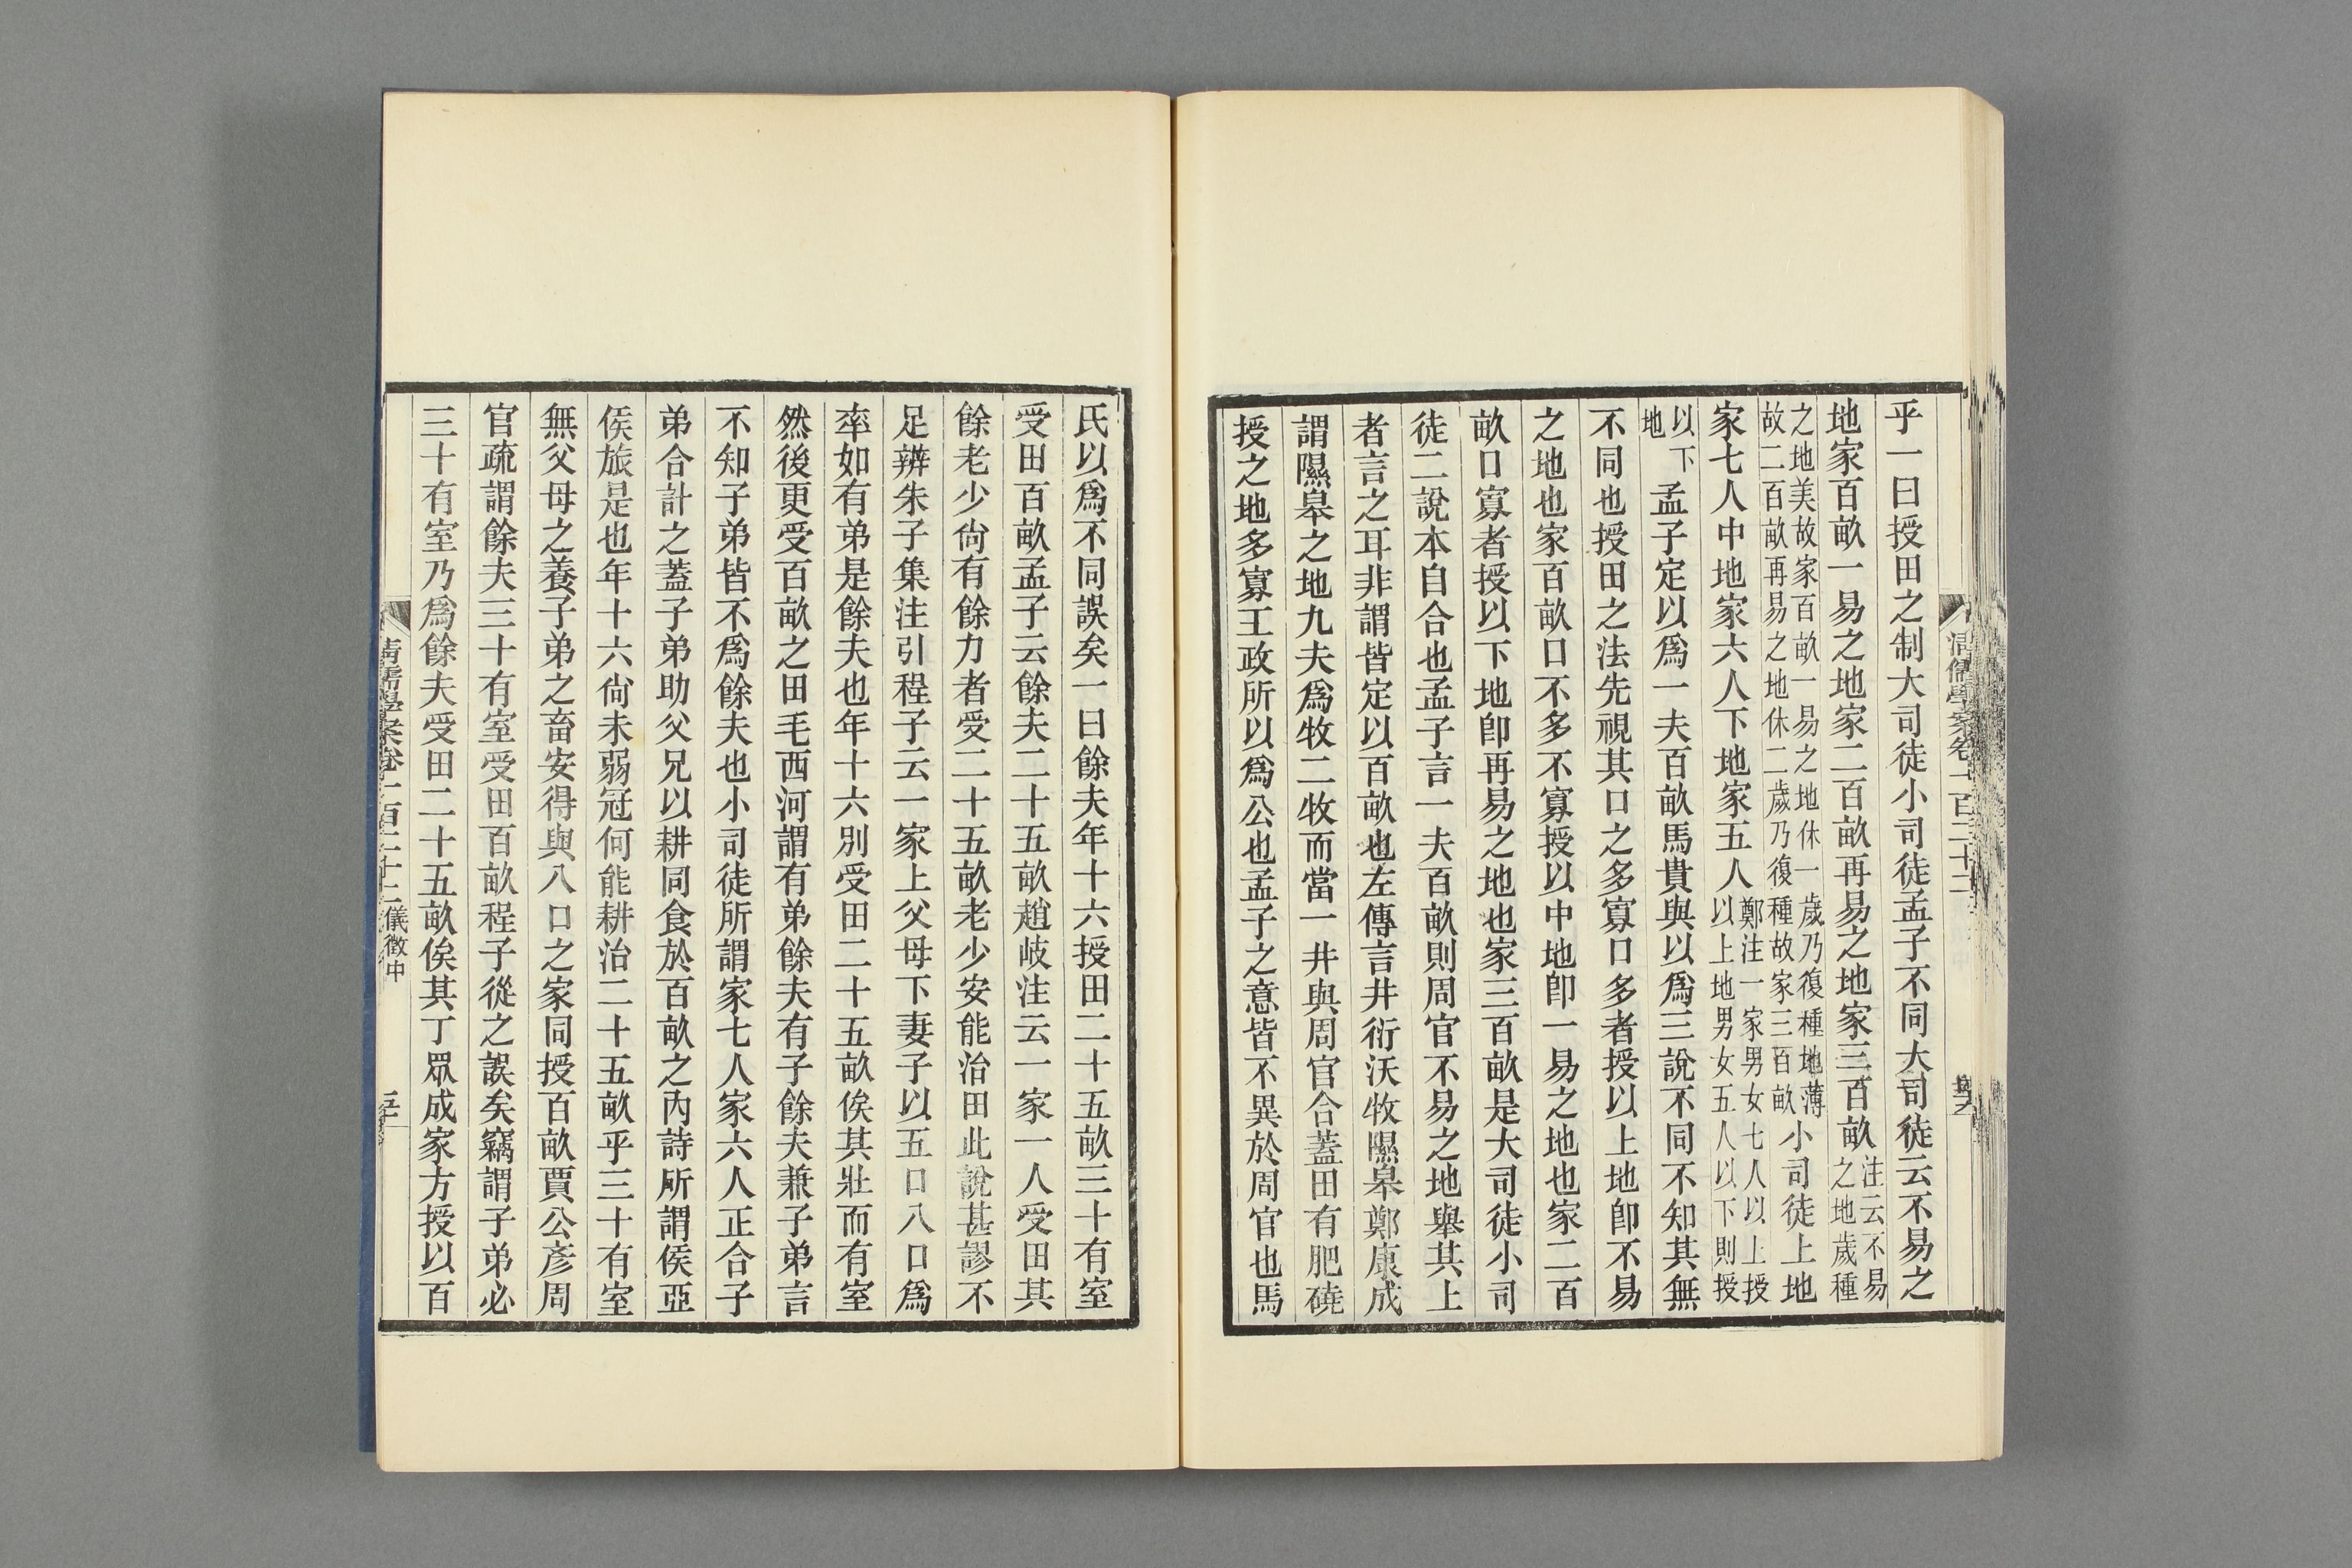 乎一曰授田之制大司徒小司徒孟子不同大司徒云不易之
地家百畝一易之地家二百畝再易之地家三百畝注云不易之地歲種
之地美故家百畝一易之地休一歲乃復種地薄故二百畝再易之地休二歲乃復種故家三百畝小司徒上地
家七人中地家六人下地家五人鄭注一家男女七人以上授以上地男女五人以下則授
以下地孟子定以爲一夫百畝馬貴與以爲三說不同不知其無
不同也授田之法先視其口之多寡口多者授以上地卽不易
之地也家百畝口不多不寡授以中地卽一易之地也家二百
畝口寡者授以下地卽再易之地也家三百畝是大司徒小司
徒二說本自合也孟子言一夫百畝則周官不易之地舉其上
者言之耳非謂皆定以百畝也左傳言井衍沃牧隰皋鄭康成
謂隰皋之地九夫爲牧二牧而當一井與周官合蓋田有肥磽
授之地多寡王政所以爲公也孟子之意皆不異於周官也馬
氏以爲不同誤矣一曰餘夫年十六授田二十五畝三十有室
受田百畝孟子云餘夫二十五畝趙岐注云一家一人受田其
餘老少尙有餘力者受二十五畝老少安能治田此說甚謬不
足辨朱子集注引程子云一家上父母下妻子以五口八口爲
率如有弟是餘夫也年十六別受田二十五畝俟其壯而有室
然後更受百畝之田毛西河謂有弟餘夫有子餘夫兼子弟言
不知子弟皆不爲餘夫也小司徒所謂家七人家六人正合子
弟合計之蓋子弟助父兄以耕同食於百畝之內詩所謂侯亞
侯旅是也年十六尙未弱冠何能耕治二十五畝乎三十有室
無父母之養子弟之畜安得與八口之家同授百畝賈公彥周
官疏謂餘夫三十有室受田百畝程子從之誤矣竊謂子弟必
三十有室乃爲餘夫受田二十五畝俟其丁眾成家方授以百
清儒學案卷一百二十二儀徵中